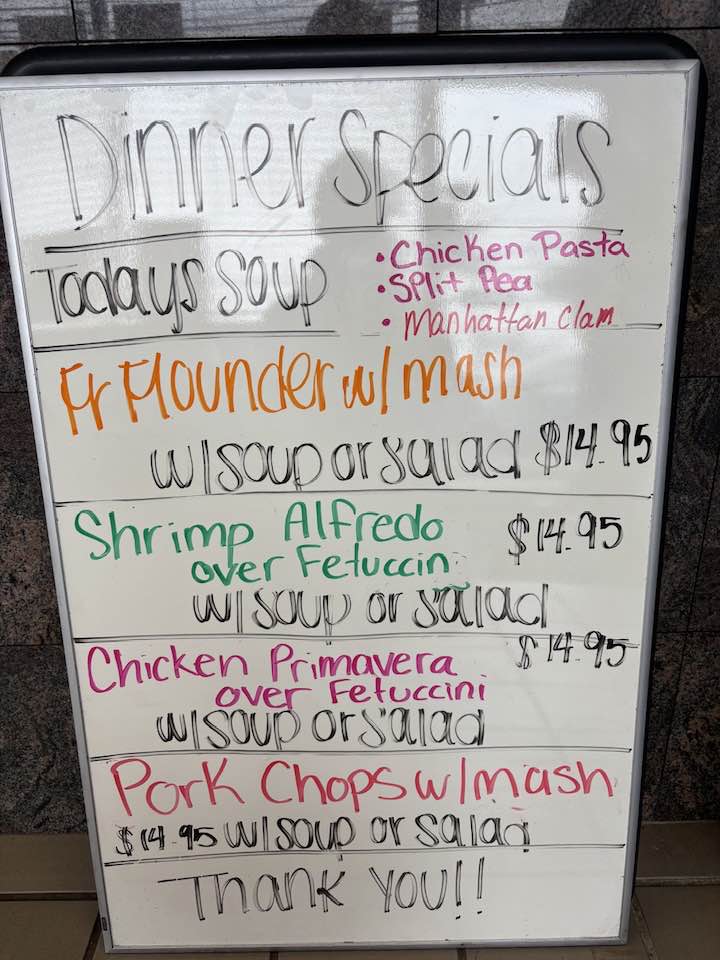 Dinner Specials
Todays Soup
• Chicken Pasta
• Split Pea
• Manhattan Clam
Fr Flounder w/ mash
w/ soup or salad $14.95
Shrimp Alfredo $14.95
over Fetuccin
w/ soup or salad
Chicken Primavera $14.95
over Fetuccini
w/ soup or salad
Pork Chops w/ mash
$14.95 w/ soup or salad
Thank You!!